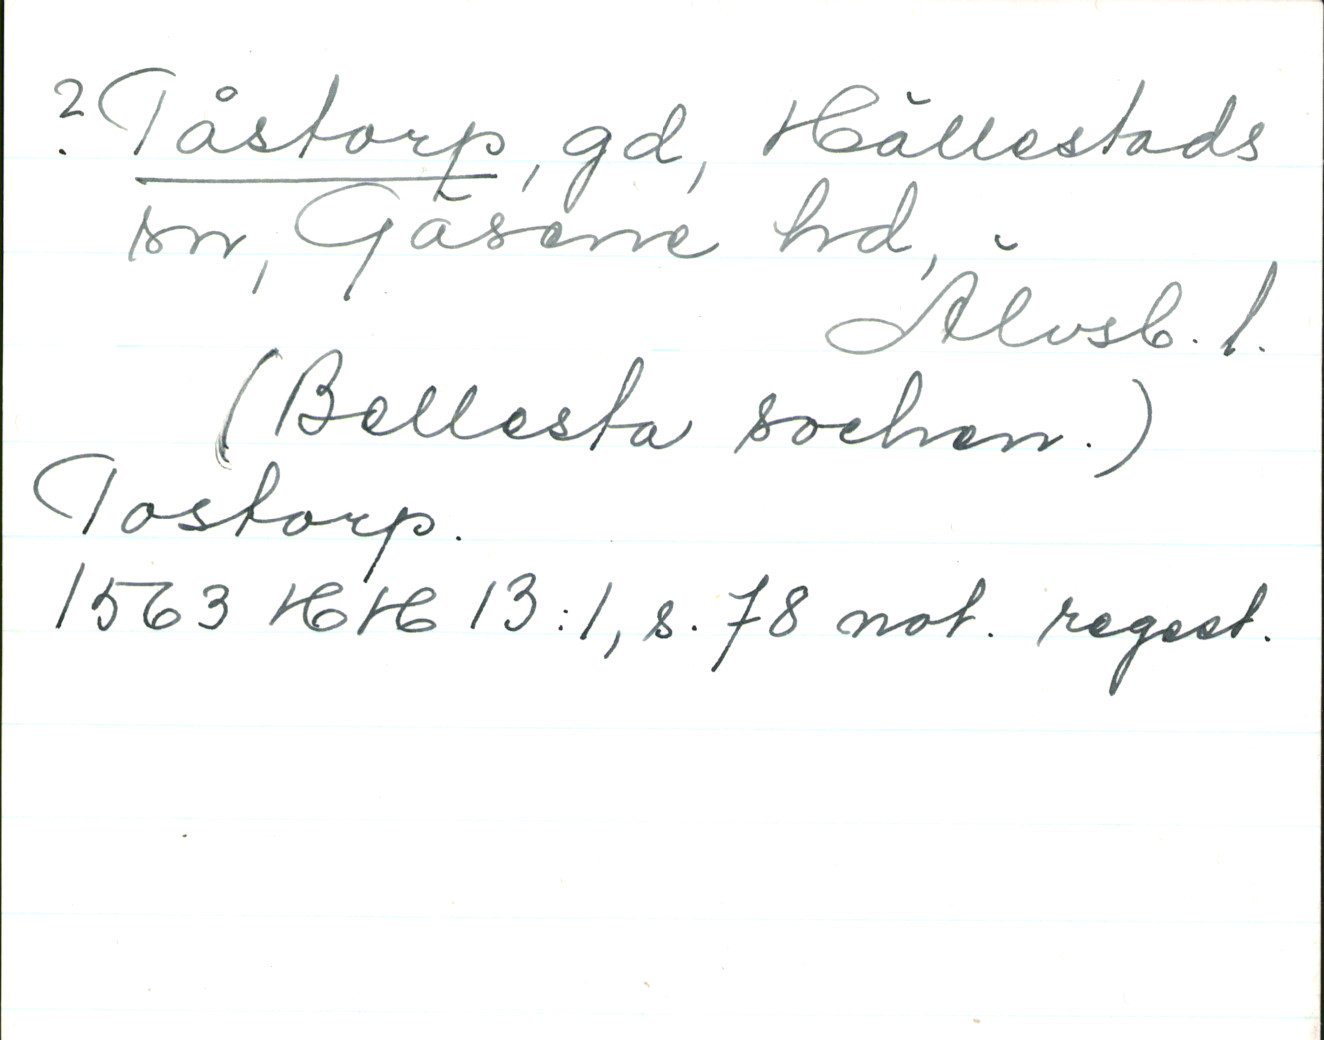 ? Tåstorp, gd, Hällestads
sn, Gäsene hd,
Älvsb. l.
(Bellesta sochen.)
Tostorp.
1563 HH 13:1, s. 78 not. regest.